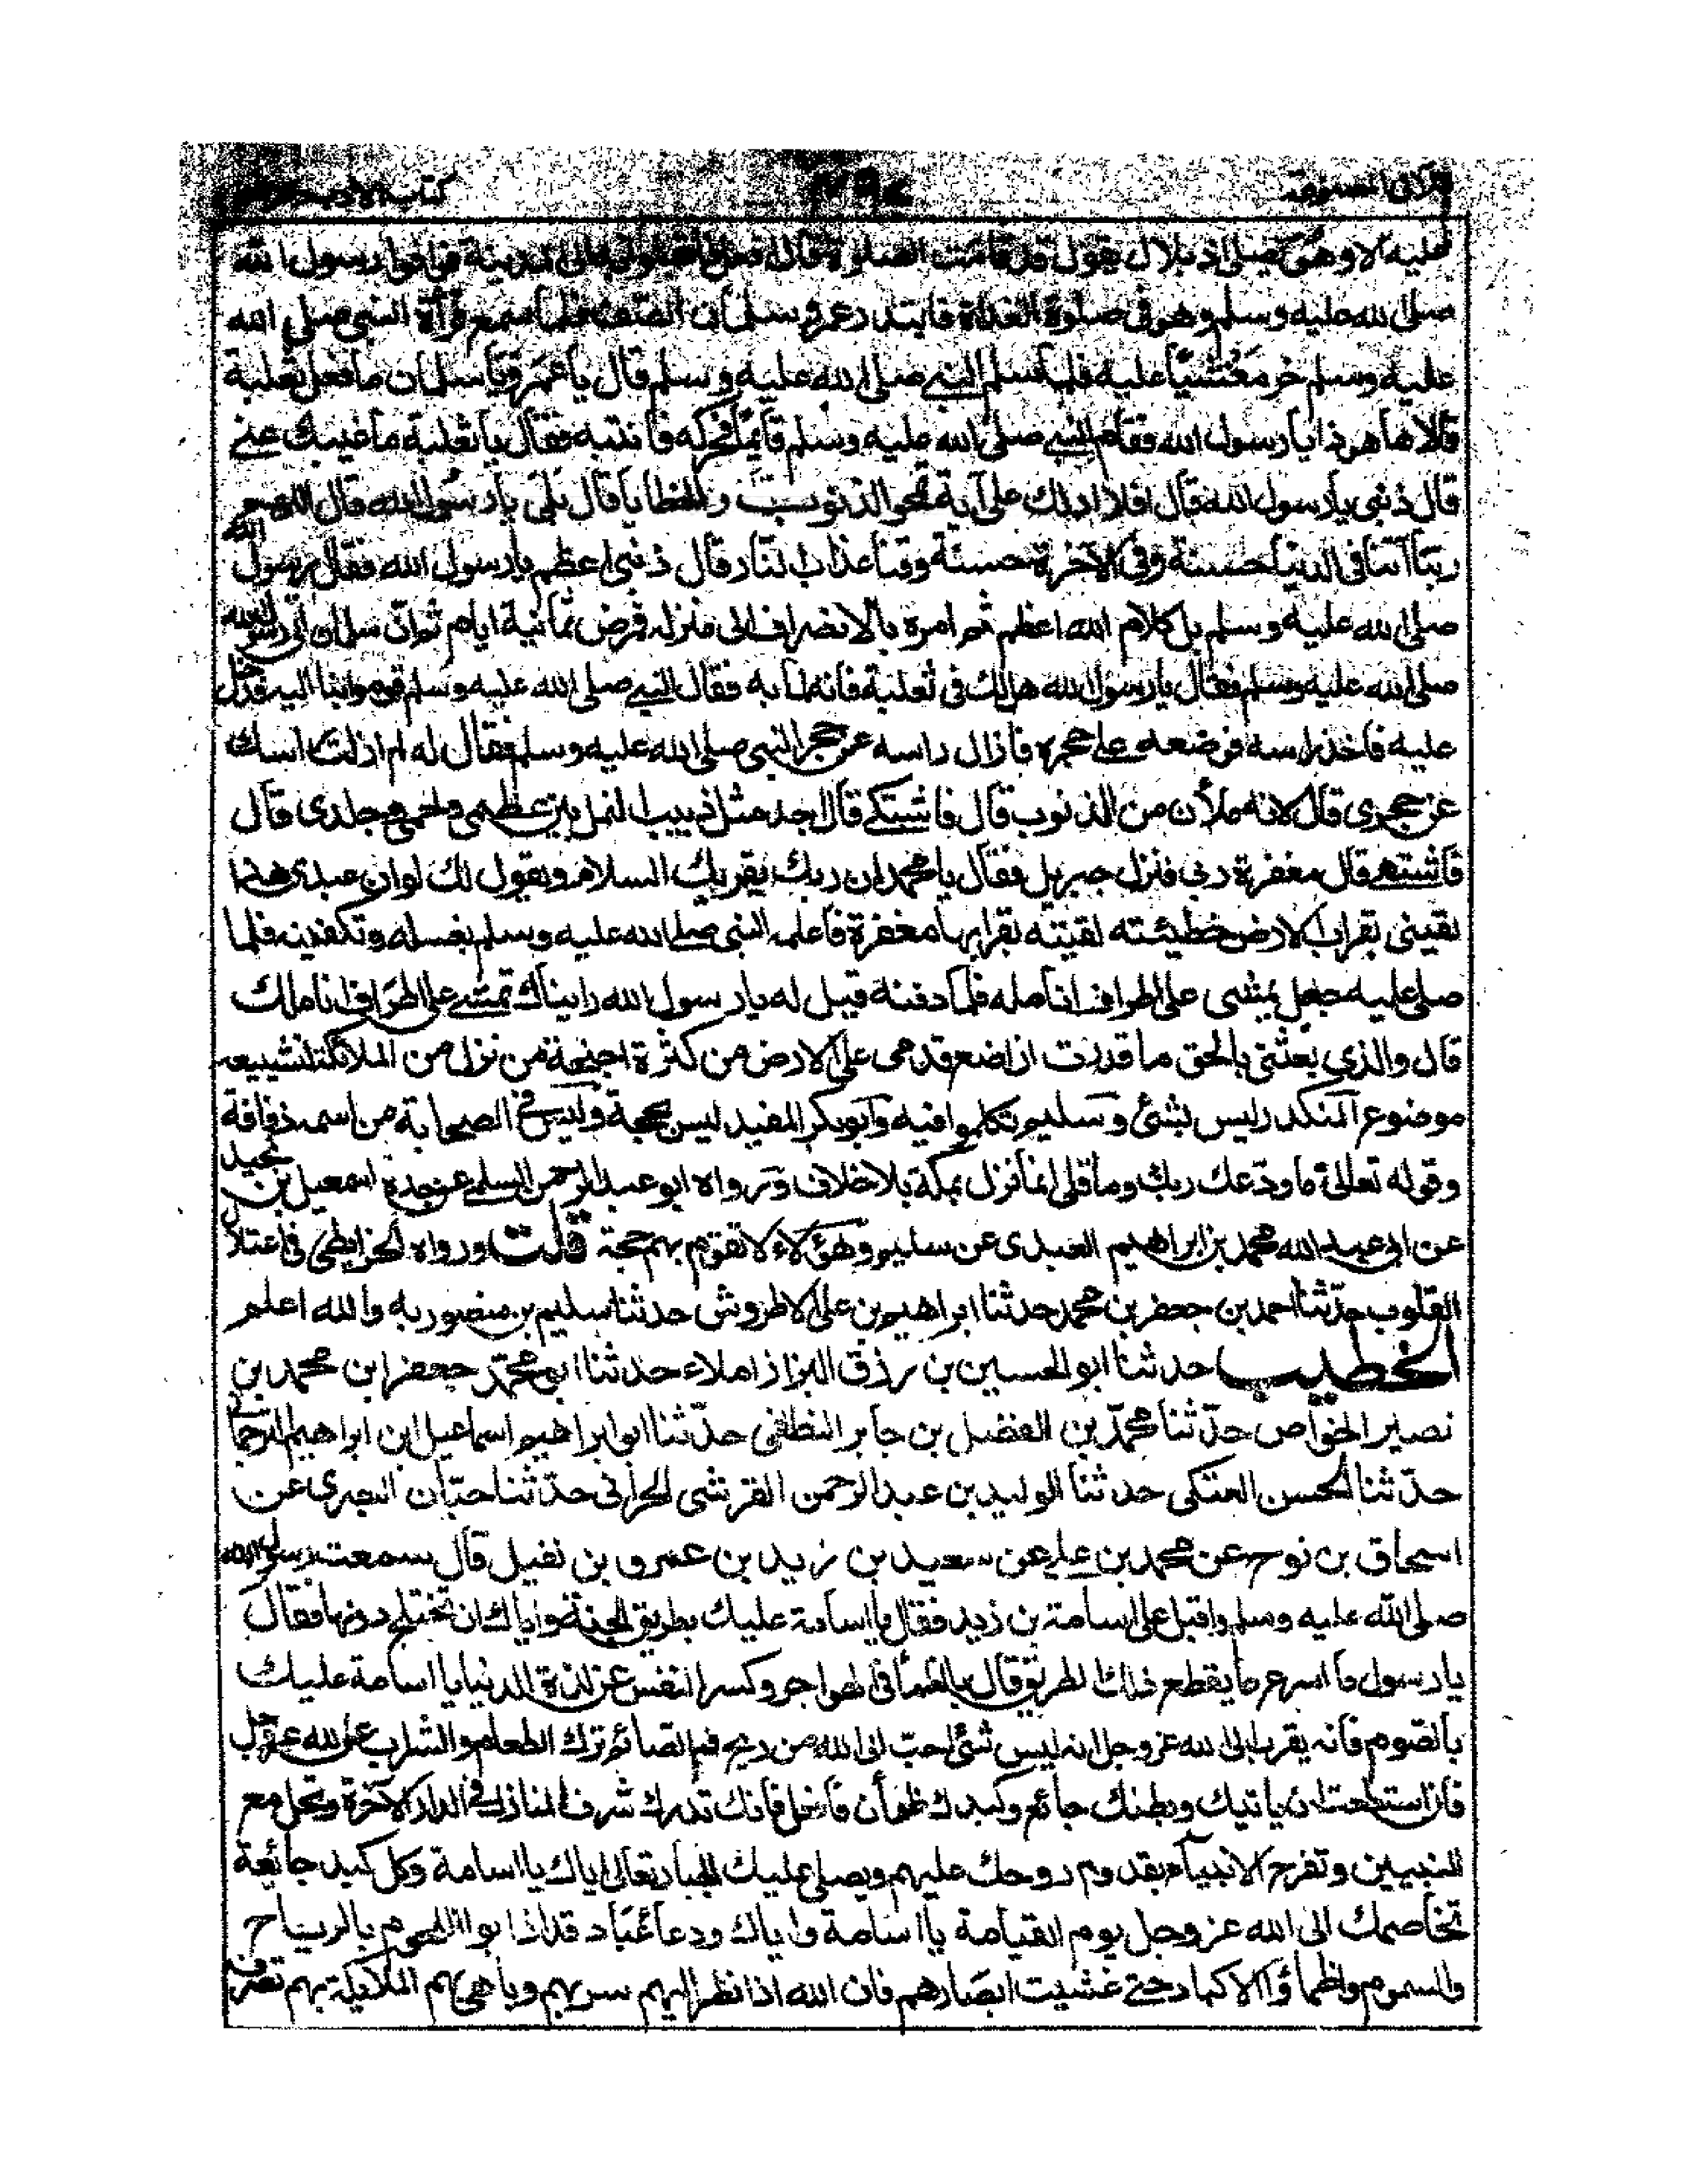 كتاب الأدب
عليه الا وهو يصلى اذ بلال يقول قد قامت الصلوة قال افعل المدينة فوافوا رسول الله
صلى الله عليه وسلم وهو فى صلوة الغداة فابتدر عمر وسلمان الصف فلما سمع قرأة النبى صلى الله
عليه وسلم خر مغشيا عليه فلما سلم النبى صلى الله عليه وسلم قال يا عمر ويا سلمان ما فعل ثعلبة
قالا ها هو ذا يا رسول الله فقام النبى صلى الله عليه وسلم قائما فحركه فانتبه فقال يا ثعلبة ما غيبك عنى
قال ذنبى يا رسول الله قال افلا ادلك على آية تمحو الذنوب والخطايا قال بلى يا رسول الله قال قل اللهم
ربنا آتنا فى الدنيا حسنة وفى الآخرة حسنة وقنا عذاب النار قال ذنبى اعظم يا رسول الله فقال رسول الله
صلى الله عليه وسلم بل كلام الله اعظم ثم امره بالانصراف الى منزله فمرض ثمانية ايام ثم ان سلمان اتى رسول الله
صلى الله عليه وسلم فقال يا رسول الله هل لك فى ثعلبة فانه لما به فقال النبى صلى الله عليه وسلم قوموا بنا اليه فدخل
عليه فاخذ راسه فوضعه على حجره فازال راسه عن حجر النبى صلى الله عليه وسلم فقال له لم ازلت راسك
عن حجرى قال لانه ملأن من الذنوب قال فاشتكى قال اجد مثل دبيب النمل بين عظمى ولحمى وجلدى قال
فاشتهى قال مغفرة ربى فنزل جبريل فقال يا محمد ان ربك يقريك السلام ويقول لك لو ان عبدى هذا
لقينى بقراب الارض خطيئته لقيته بقرابها مغفرة فاعلمه النبى صلى الله عليه وسلم بغسله وتكفينه فلما
صلى عليه جعل يمشى على اطراف انامله فلما دفنه قيل له يا رسول الله رايناك تمشى على اطراف اناملك
قال والذى بعثنى بالحق ما قدرت ان اضع قدمى على الارض من كثرة اجنحة من نزل من الملائكة لتشييعه
موضوع المنكدر ليس بشئ وسليم تكلموا فيه وابو بكر المفيد ليس بحجة وليس فى الصحابة من اسمه ذفافة
وقوله تعالى ما ودعك ربك وما قلى انما نزل بمكة بلا خلاف ورواه ابو عبد الرحمن السلمى عن جده اسمعيل بن نجيد
عن ابى عبد الله محمد بن ابراهيم العبدى عن سليم وهؤلاء لا تقوم بهم حجة قلت ورواه الخرايطى فى اعتلال
القلوب حدثنا احمد بن جعفر بن محمد حدثنا ابراهيم بن على الاطروش حدثنا سليم بن منصور به والله اعلم
الخطيب حدثنا ابو الحسين بن رزق البزاز املاء حدثنا ابو محمد جعفر ابن محمد بن
نصير الخواص حدثنا محمد بن الفضل بن جابر النطافى حدثنا ابو ابراهيم اسماعيل ابن ابراهيم الترجمانى
حدثنا الحسن العتكى حدثنا الوليد بن عبد الرحمن القرشى الحرانى حدثنا حبان البصرى عن
اسحاق بن نوح عن محمد بن على عن سعيد بن زيد بن عمرو بن نفيل قال سمعت رسول الله
صلى الله عليه وسلم واقبل على اسامة بن زيد فقال يا اسامة عليك بطريق الجنة واياك ان تختلج دونها فقال
يا رسول ما اسرع ما يقطع ذلك الطريق قال بالظمأ فى الهواجر وكسر النفس عن لذة الدنيا يا اسامة عليك
بالصوم فانه يقرب الى الله عز وجل انه ليس شئ احب الى الله من ريح فم الصائم ترك الطعام والشراب لله عز وجل
فان استطعت ان ياتيك وبطنك جائع وكبدك ظمأن فافعل فانك تدرك شرف المنازل فى الدار الآخرة وتحل مع
النبيين وتفرح الانبياء بقدوم روحك عليهم ويصلى عليك الجبار تعالى اياك يا اسامة وكل كبد جائعة
تخاصمك الى الله عز وجل يوم القيامة يا اسامة واياك ودعا عباد قد اذابوا اللحوم بالرياح
والسموم واظمأوا الاكباد حتى غشيت ابصارهم فان الله اذا نظر اليهم سر بهم وباهى بهم الملايكة بهم تصرف